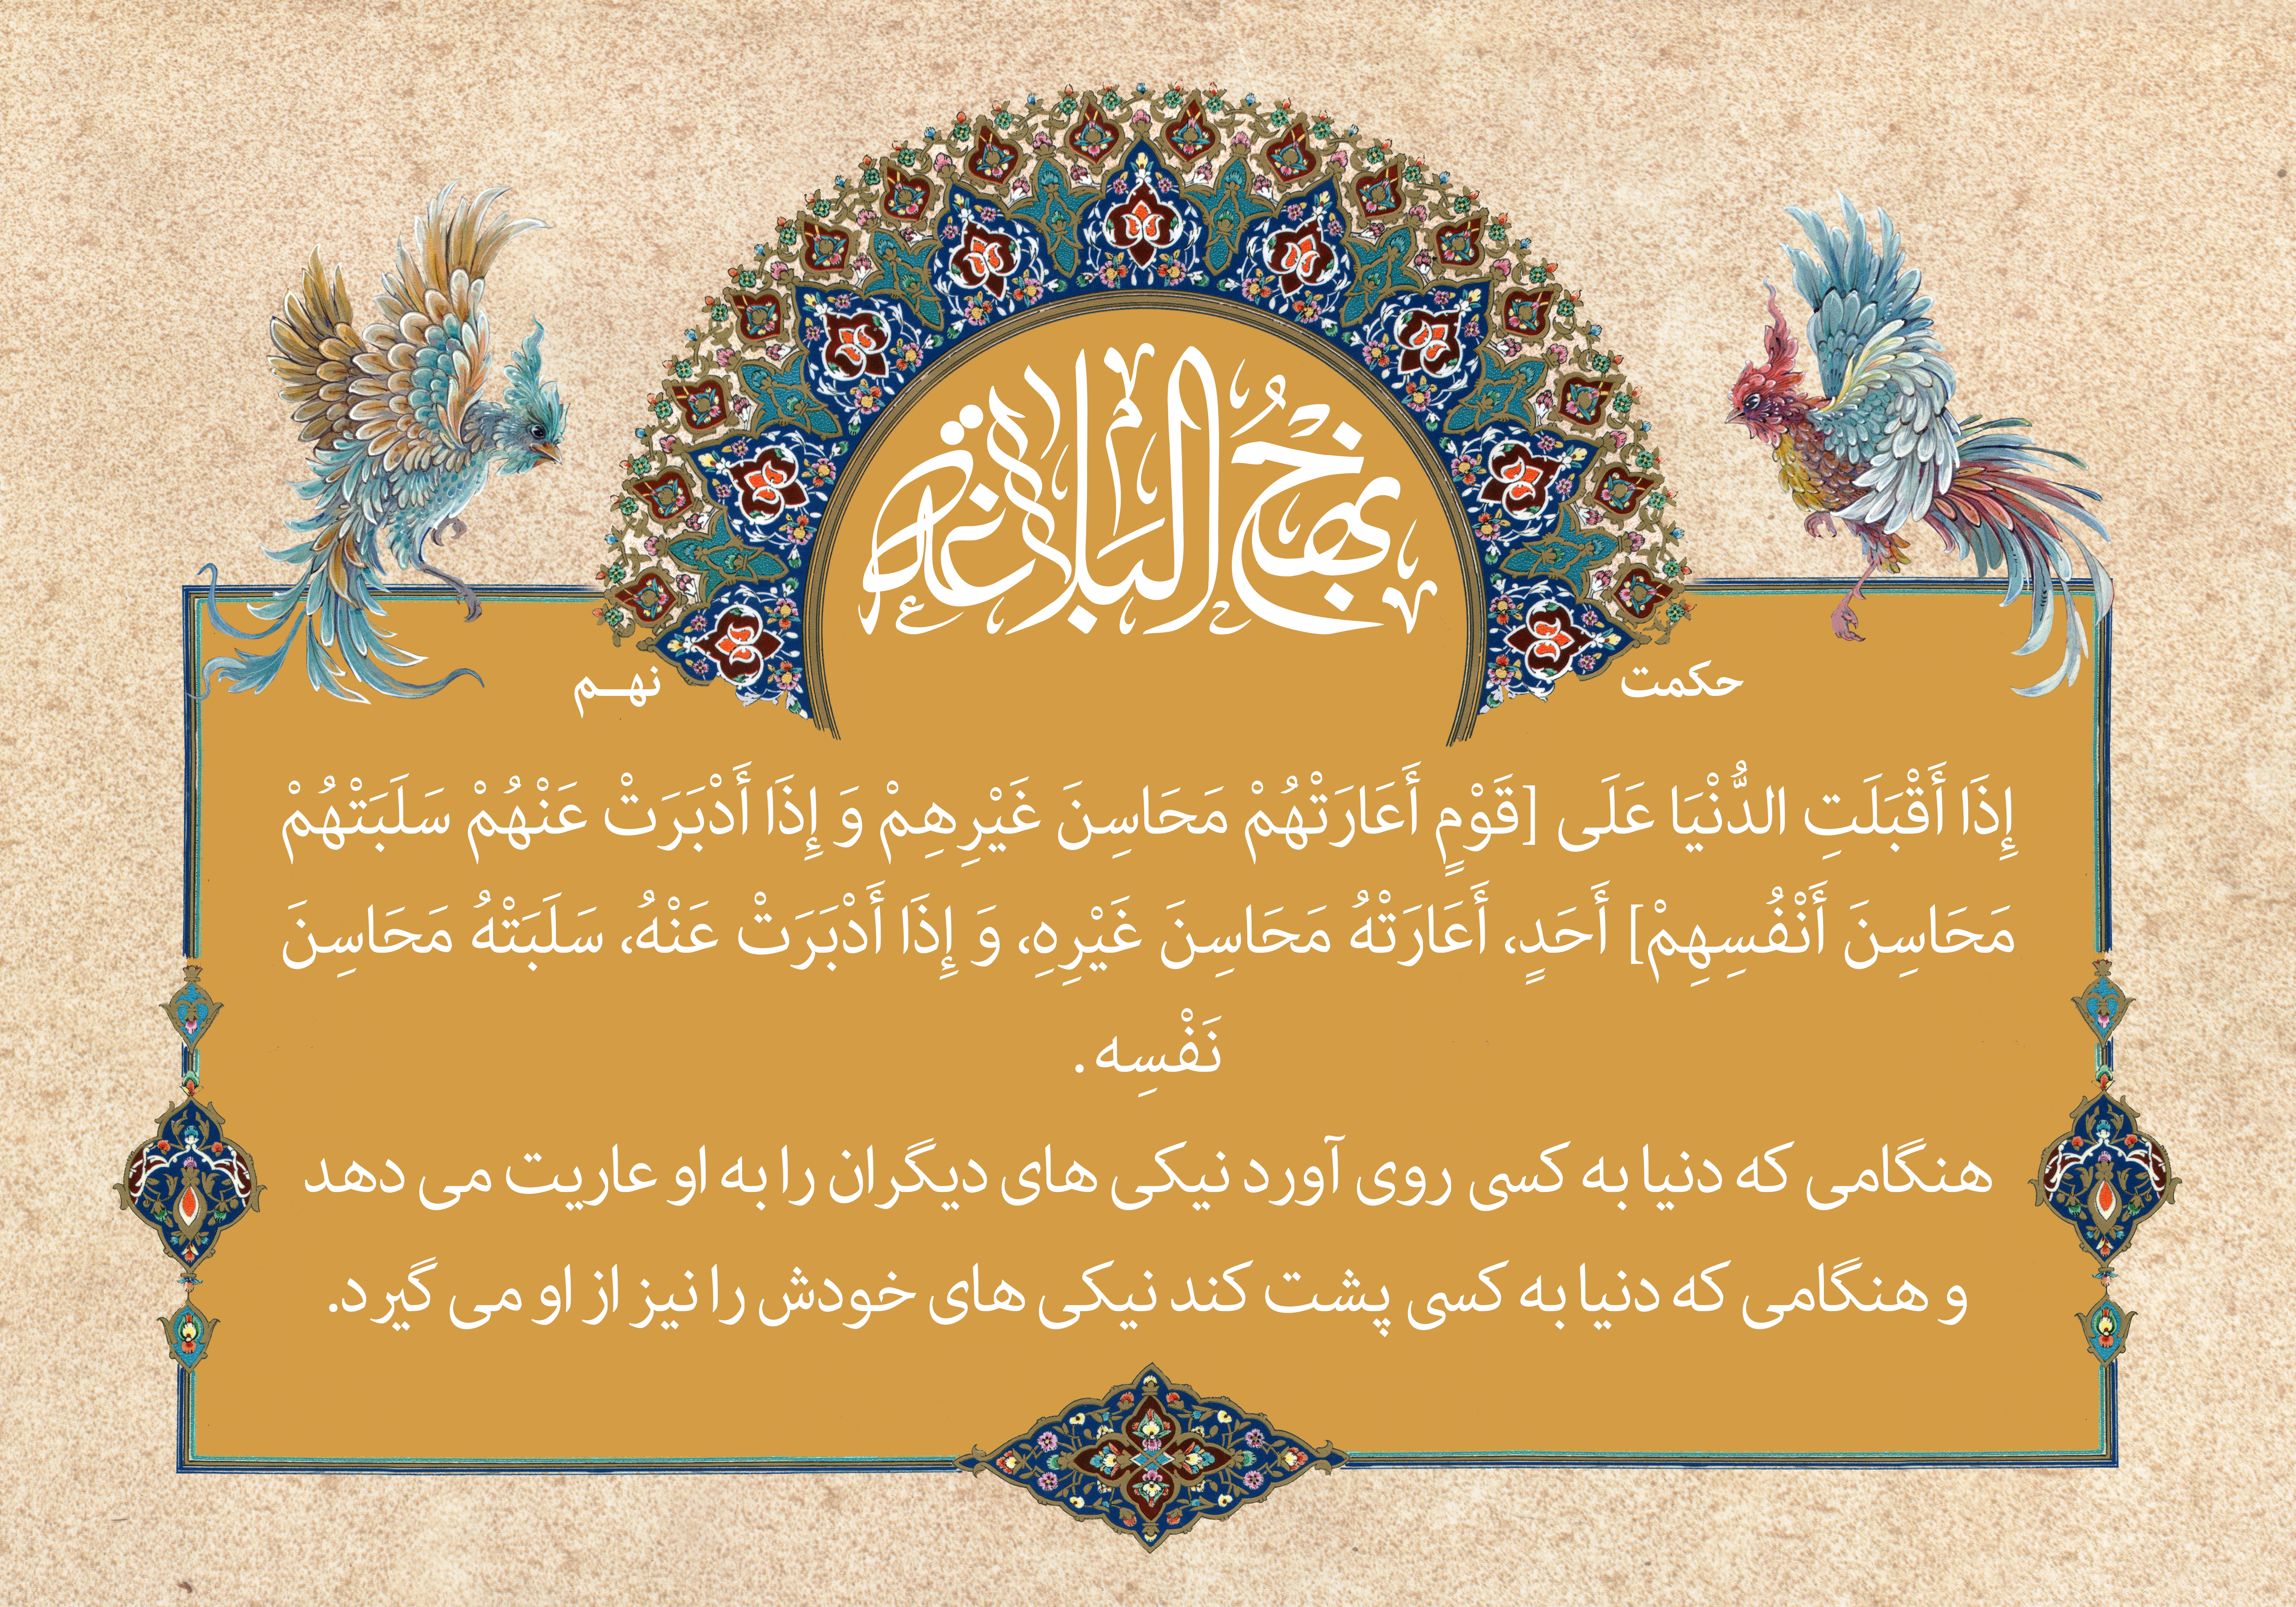 نهج البلاغة
حکمت نهم
إِذَا أَقْبَلَتِ الدُّنْيَا عَلَى [قَوْمٍ أَعَارَتْهُمْ مَحَاسِنَ غَيْرِهِمْ وَ إِذَا أَدْبَرَتْ عَنْهُمْ سَلَبَتْهُمْ
مَحَاسِنَ أَنْفُسِهِمْ] أَحَدٍ، أَعَارَتْهُ مَحَاسِنَ غَيْرِهِ، وَ إِذَا أَدْبَرَتْ عَنْهُ، سَلَبَتْهُ مَحَاسِنَ
نَفْسِه .
هنگامی که دنیا به کسی روی آورد نیکی های دیگران را به او عاریت می دهد
و هنگامی که دنیا به کسی پشت کند نیکی های خودش را نیز از او می گیرد.